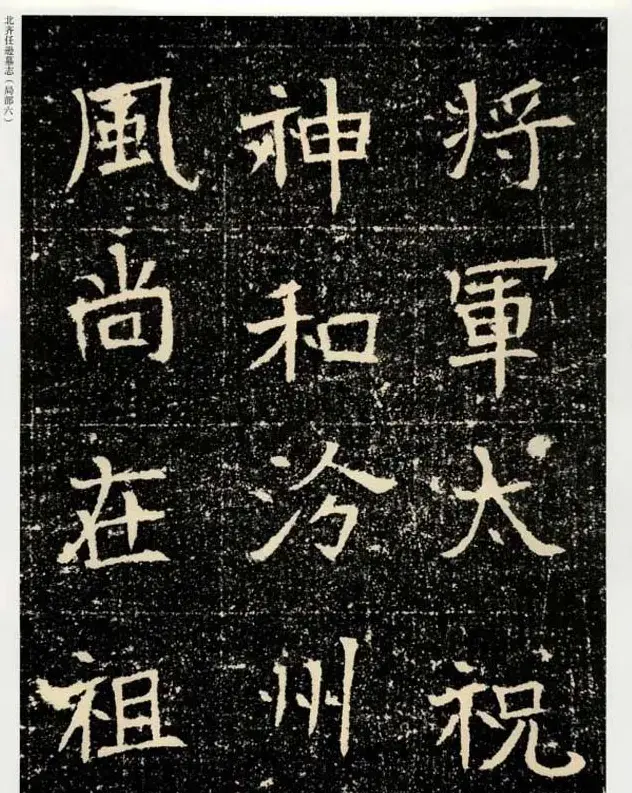 北齐任逊墓志（局部六）
将軍太祝
神和汾州
風尚在祖